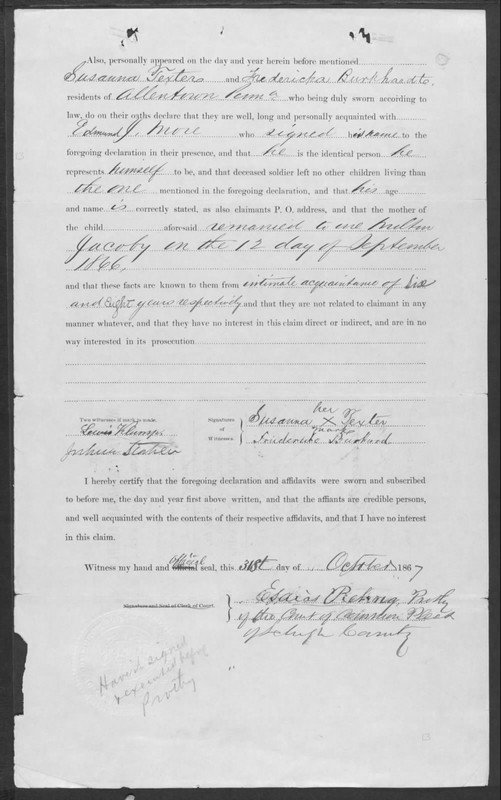 Also, personally appeared on the day and year herein before mentioned
Susanna Texter and Fredericka Burkhardt
residents of Allentown Penna who being duly sworn according to
law, do on their oaths declare that they are well, long and personally acquainted with
Edmund J. More who signed his name to the
foregoing declaration in their presence, and that he is the identical person he
represents himself to be, and that deceased soldier left no other children living than
the one mentioned in the foregoing declaration, and that his age
and name is correctly stated, as also claimants P. O. address, and that the mother of
the child aforesaid remarried to one
Jacoby on the 12 day of September
1866,
and that these facts are known to them from intimate acquaintance of
and Eight years respectively and that they are not related to claimant in any
manner whatever, and that they have no interest in this claim direct or indirect, and are in no
way interested in its prosecution
Two witnesses if mark is made.
Signatures of Witnesses.
Susanna her X mark Texter
Lewis Klump
Friedericke Burkard
Joshua Stahler
I hereby certify that the foregoing declaration and affidavits were sworn and subscribed
to before me, the day and year first above written, and that the affiants are credible persons,
and well acquainted with the contents of their respective affidavits, and that I have no interest
in this claim.
Witness my hand and official official seal, this 31st day of October 1867
Signature and Seal of Clerk of Court.
Esaias Rehrig Prothy
of the Court of Common Pleas
of Lehigh County
signed
executed before
Prothy